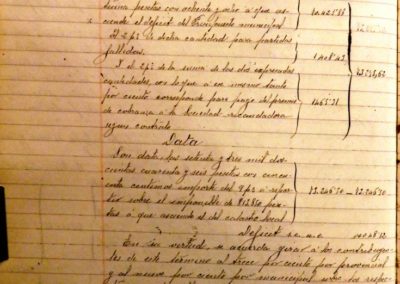 cuma pesetas con ochenta y ocho á que as-
ciende el deficit del Presupuesto municipal
El 2 p% de dicha cantidad para partidas
fallidas.
Y el 2 p% de la suma de las dos espresadas
cantidades, con lo que á un mismo tanto
por ciento corresponde para pago del premio
de cobranza á la Sociedad recaudadora
segun contrato
Data
Son data, las setenta y tres mil dos-
cientas cuarenta y seis pesetas con cin-
cuenta centimos importe del 9 p% á repar-
tir sobre el imponible de 812.850 pese-
tas á que asciende el del catastro local
73.246'50 - 73.246'50
Deficit
En su vertud se acuerda girar á los contribuyen-
tes de este termino al trece por ciento por provincial
y al nueve por ciento por municipal sobre los respec-